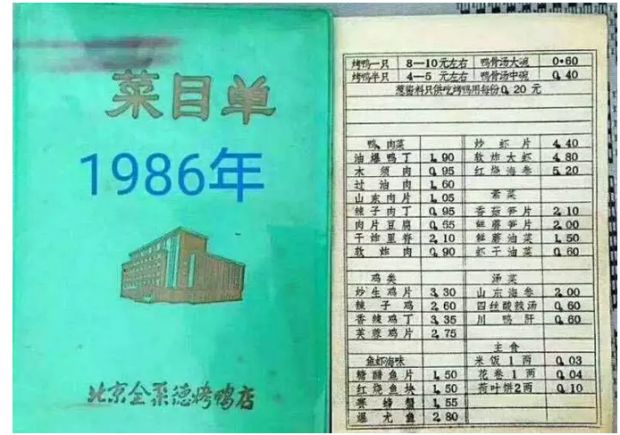 菜目单
1986年
北京全聚德烤鸭店
烤鸭一只 8—10元左右 鸭骨汤大碗 0.60
烤鸭半只 4—5元左右 鸭骨汤中碗 0.40
葱酱料只供吃烤鸭用每份0.20元
鸭、肉菜
油爆鸭丁 1.90
木须肉 0.95
过油肉 1.60
山东肉片 1.05
辣子肉丁 0.95
肉片豆腐 0.65
干炸里脊 2.10
软炸肉 0.90
鸡类
炒生鸡片 3.30
辣子鸡 2.60
香辣鸡丁 3.35
芙蓉鸡片 2.75
鱼虾海味
糟溜鱼片 1.50
红烧鱼块 1.50
赛螃蟹 1.55
爆尤鱼 2.80
炒虾片 4.40
软炸大虾 4.80
红烧海参 5.20
素菜
香菇笋片 2.10
鲜蘑笋片 2.00
鲜蘑油菜 1.50
虾子油菜 0.60
汤菜
山东海参 2.00
四丝酸辣汤 0.60
川鸭肝 0.60
主食
米饭1两 0.03
花卷1两 0.04
荷叶饼2两 0.10